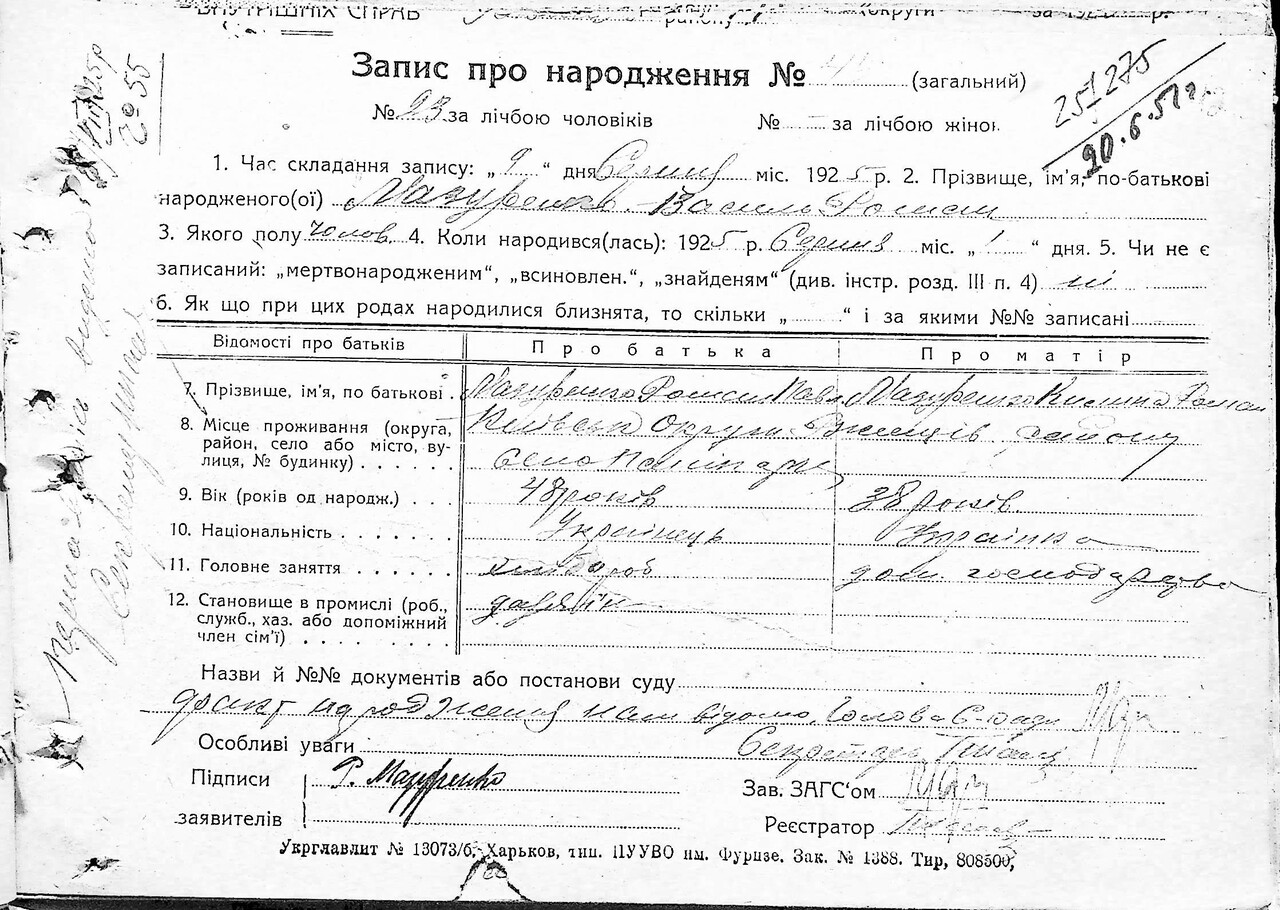 ВНУТРІШНІХ СПРАВ району округи за 192 р.
Запис про народження № (загальний)
№ 23 за лічбою чоловіків № – за лічбою жінок
251275
20.6.51
№ 55
1. Час складання запису: „9“ дня Серпня міс. 1925 р. 2. Прізвище, ім’я, по-батькові
народженого(ої) Мазуренко Василь Роман
3. Якого полу Чолов. 4. Коли народився(лась): 1925 р. Серпня міс. „1“ дня. 5. Чи не є
записаний: „мертвонародженим“, „всиновлен.“, „знайденям“ (див. інстр. розд. III п. 4) ні
6. Як що при цих родах народилися близнята, то скільки „ “ і за якими №№ записані
Відомості про батьків Про батька Про матір
7. Прізвище, ім’я, по батькові Мазуренко Роман Павл Мазуренко Роман
8. Місце проживання (округа, Київська Округи району
район, село або місто, ву- село
лиця, № будинку)
9. Вік (років од народж.) 48 років 38 років
10. Національність Українець Українка
11. Головне заняття хлібороб дом. господарство
12. Становище в промислі (роб.,
служб., хаз. або допоміжний
член сім’ї)
Назви й №№ документів або постанови суду
факт народження нам відомо, Голова С-ради
Особливі уваги Секретарь
Підписи Р. Мазуренко Зав. ЗАГС‘ом
заявителів Реєстратор
Укрглавлит № 13073/б. Харьков, тип. ПУУВО им. Фрунзе. Зак. № 1388. Тир. 808500,